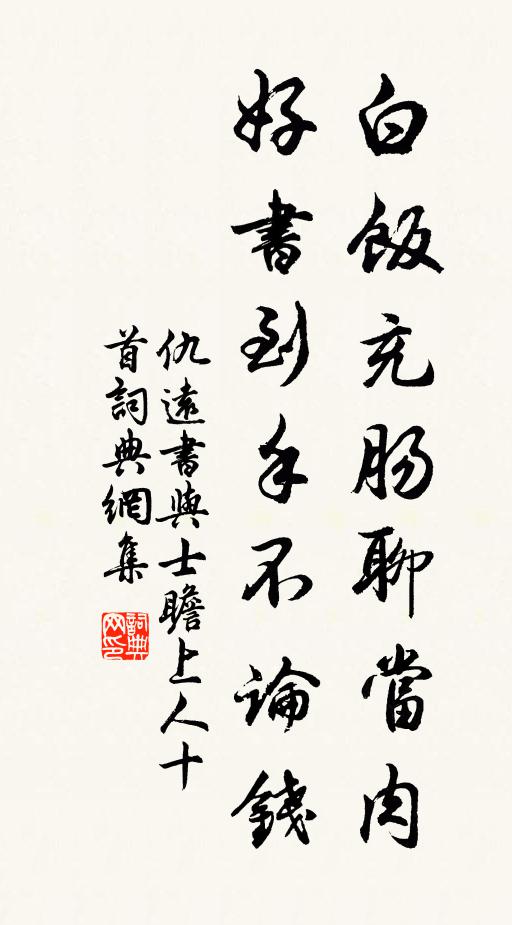 白飯充肠聊當肉
好書到手不論錢
仇遠書與士瞻上人十
首詞典網集
詞典
网印